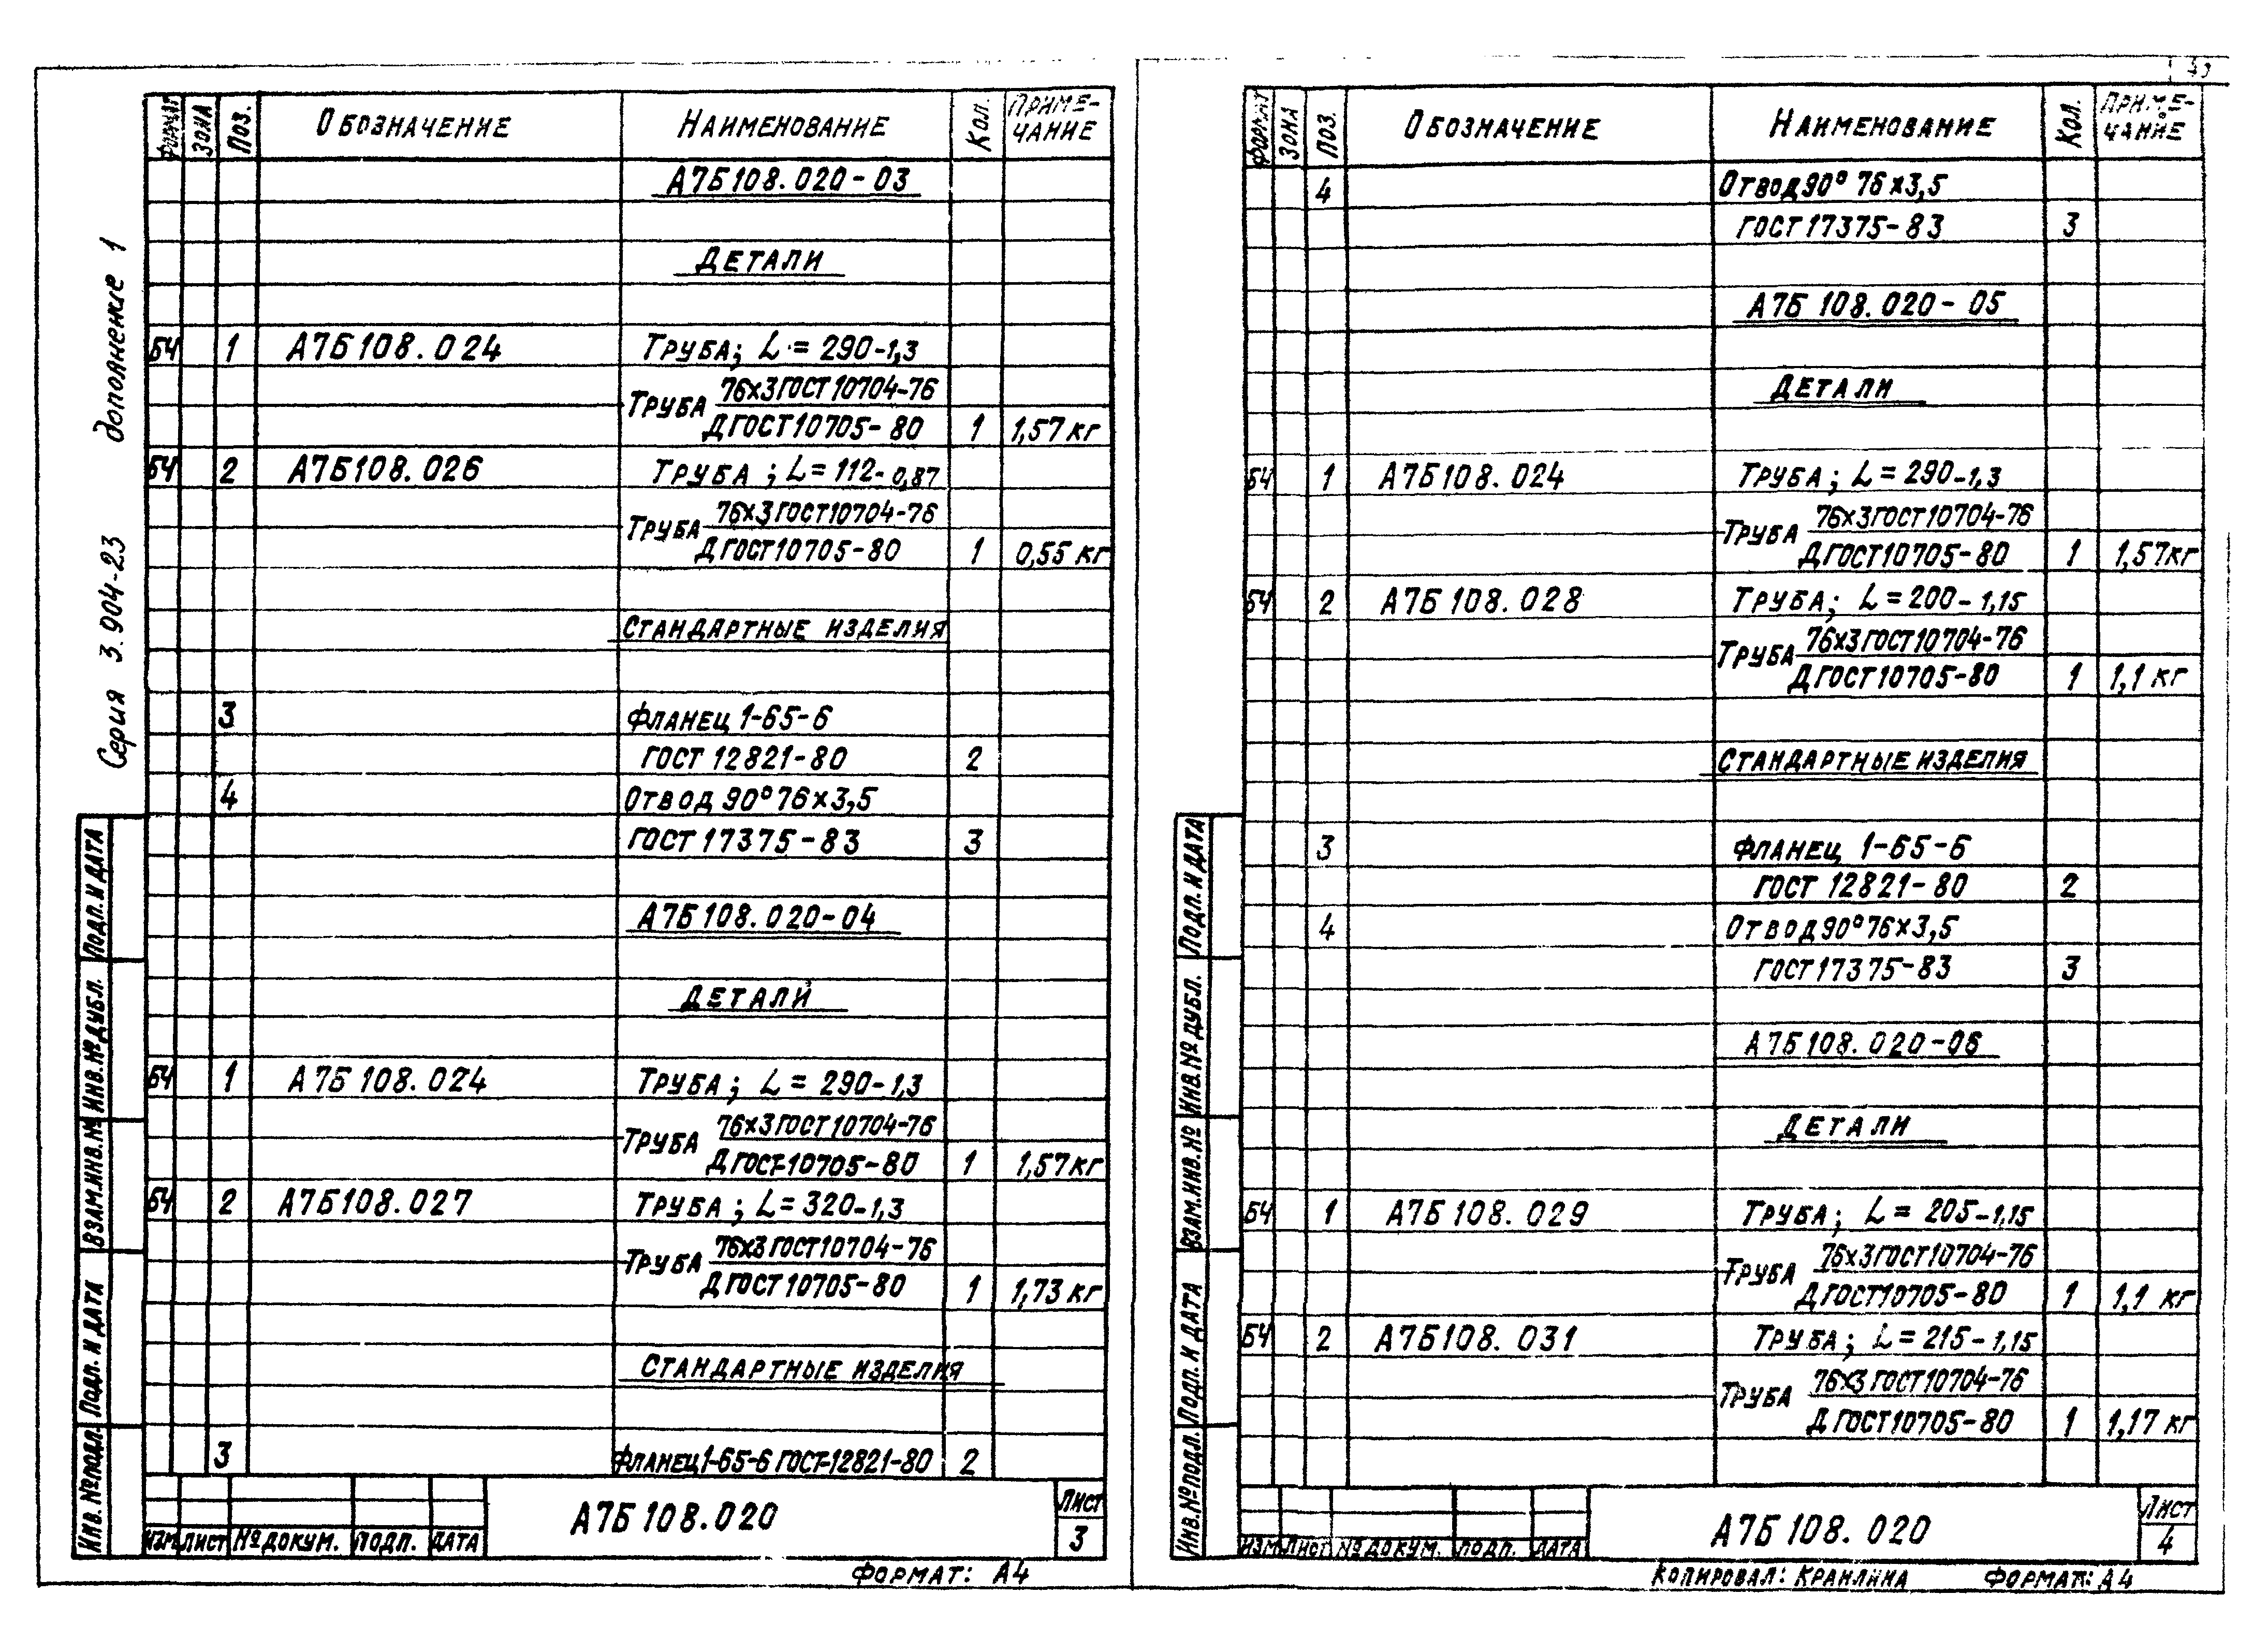 Серия 3.904-23 дополнение 1
ФОРМАТ ЗОНА ПОЗ. ОБОЗНАЧЕНИЕ НАИМЕНОВАНИЕ КОЛ. ПРИМЕ-
ЧАНИЕ
А7Б108.020-03
ДЕТАЛИ
БЧ 1 А7Б108.024 ТРУБА; L = 290-1,3
76х3 ГОСТ 10704-76
ТРУБА
Д ГОСТ 10705-80 1 1,57 кг
БЧ 2 А7Б108.026 ТРУБА ; L = 112-0,87
76х3 ГОСТ 10704-76
ТРУБА
Д ГОСТ 10705-80 1 0,55 кг
СТАНДАРТНЫЕ ИЗДЕЛИЯ
3 ФЛАНЕЦ 1-65-6
ГОСТ 12821-80 2
4 ОТВОД 90° 76х3,5
ГОСТ 17375-83 3
А7Б108.020-04
ДЕТАЛИ
БЧ 1 А7Б108.024 ТРУБА; L = 290-1,3
76х3 ГОСТ 10704-76
ТРУБА
Д ГОСТ-10705-80 1 1,57 кг
БЧ 2 А7Б108.027 ТРУБА ; L = 320-1,3
76х3 ГОСТ 10704-76
ТРУБА
Д ГОСТ 10705-80 1 1,73 кг
СТАНДАРТНЫЕ ИЗДЕЛИЯ
3 ФЛАНЕЦ 1-65-6 ГОСТ-12821-80 2
ИНВ. № ПОДЛ. ПОДП. И ДАТА ВЗАМ.ИНВ.№ ИНВ.№ ДУБЛ. ПОДП. И ДАТА
ИЗМ ЛИСТ № ДОКУМ. ПОДП. ДАТА
А7Б108.020
ЛИСТ
3
ФОРМАТ: А4
ФОРМАТ ЗОНА ПОЗ. ОБОЗНАЧЕНИЕ НАИМЕНОВАНИЕ КОЛ. ПРИМЕ-
ЧАНИЕ
4 ОТВОД 90° 76х3,5
ГОСТ 17375-83 3
А7Б 108.020-05
ДЕТАЛИ
БЧ 1 А7Б108.024 ТРУБА; L = 290-1,3
76х3 ГОСТ 10704-76
ТРУБА
Д ГОСТ 10705-80 1 1,57 кг
БЧ 2 А7Б108.028 ТРУБА; L = 200-1,15
76х3 ГОСТ 10704-76
ТРУБА
Д ГОСТ 10705-80 1 1,1 кг
СТАНДАРТНЫЕ ИЗДЕЛИЯ
3 ФЛАНЕЦ 1-65-6
ГОСТ 12821-80 2
4 ОТВОД 90° 76х3,5
ГОСТ 17375-83 3
А7Б108.020-06
ДЕТАЛИ
БЧ 1 А7Б108.029 ТРУБА; L = 205-1,15
76х3 ГОСТ 10704-76
ТРУБА
Д ГОСТ 10705-80 1 1,1 кг
БЧ 2 А7Б108.031 ТРУБА; L = 215-1,15
76х3 ГОСТ 10704-76
ТРУБА
Д ГОСТ 10705-80 1 1,17 кг
ИНВ. № ПОДЛ. ПОДП. И ДАТА ВЗАМ.ИНВ.№ ИНВ.№ ДУБЛ. ПОДП. И ДАТА
ИЗМ ЛИСТ № ДОКУМ. ПОДП. ДАТА
А7Б108.020
ЛИСТ
4
КОПИРОВАЛ: ФОРМАТ: А4